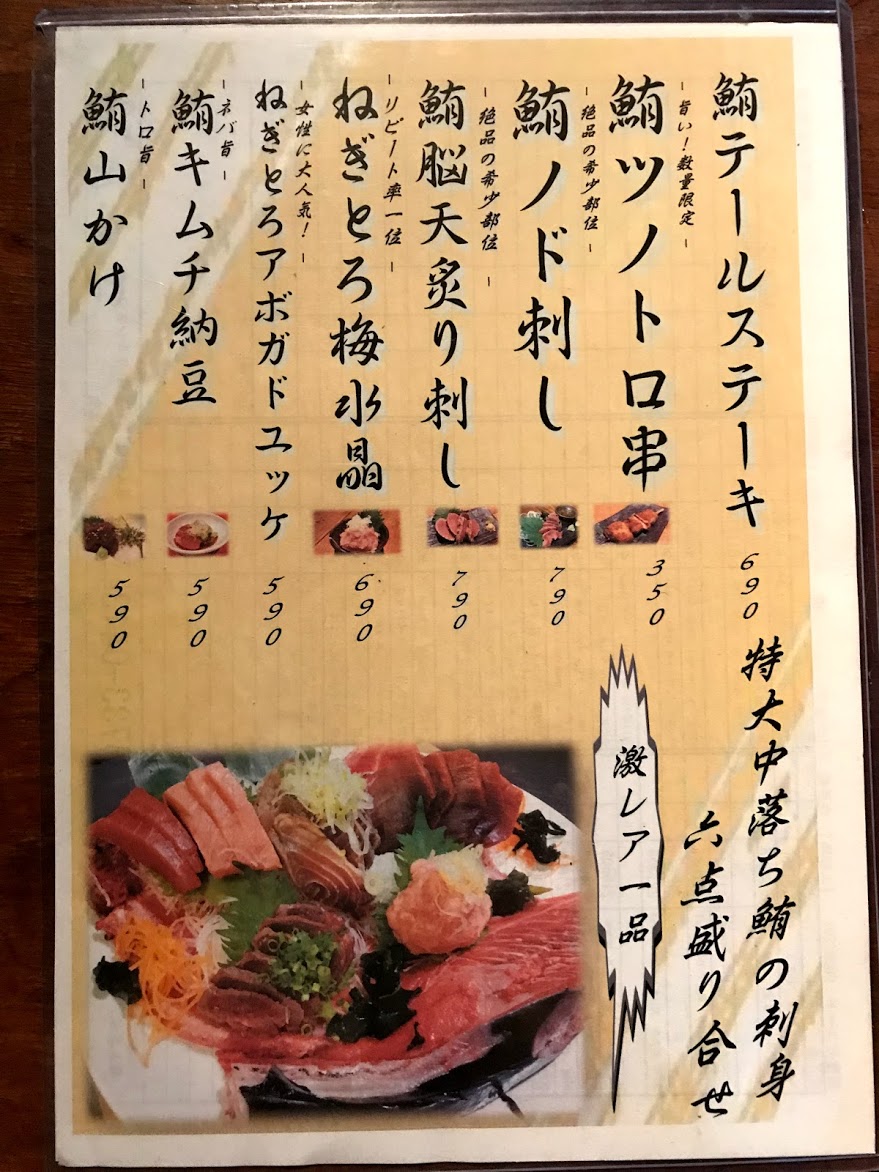 鮪テールステーキ 690
-旨い!数量限定-
鮪ツノトロ串 350
-絶品の希少部位-
鮪ノド刺し 790
-絶品の希少部位-
鮪脳天炙り刺し 790
-リピート率一位-
ねぎとろ梅水晶 690
-女性に大人気!-
ねぎとろアボガドユッケ 590
-ネバ旨-
鮪キムチ納豆 590
-トロ旨-
鮪山かけ 590
特大中落ち鮪の刺身
六点盛り合せ
激レア一品